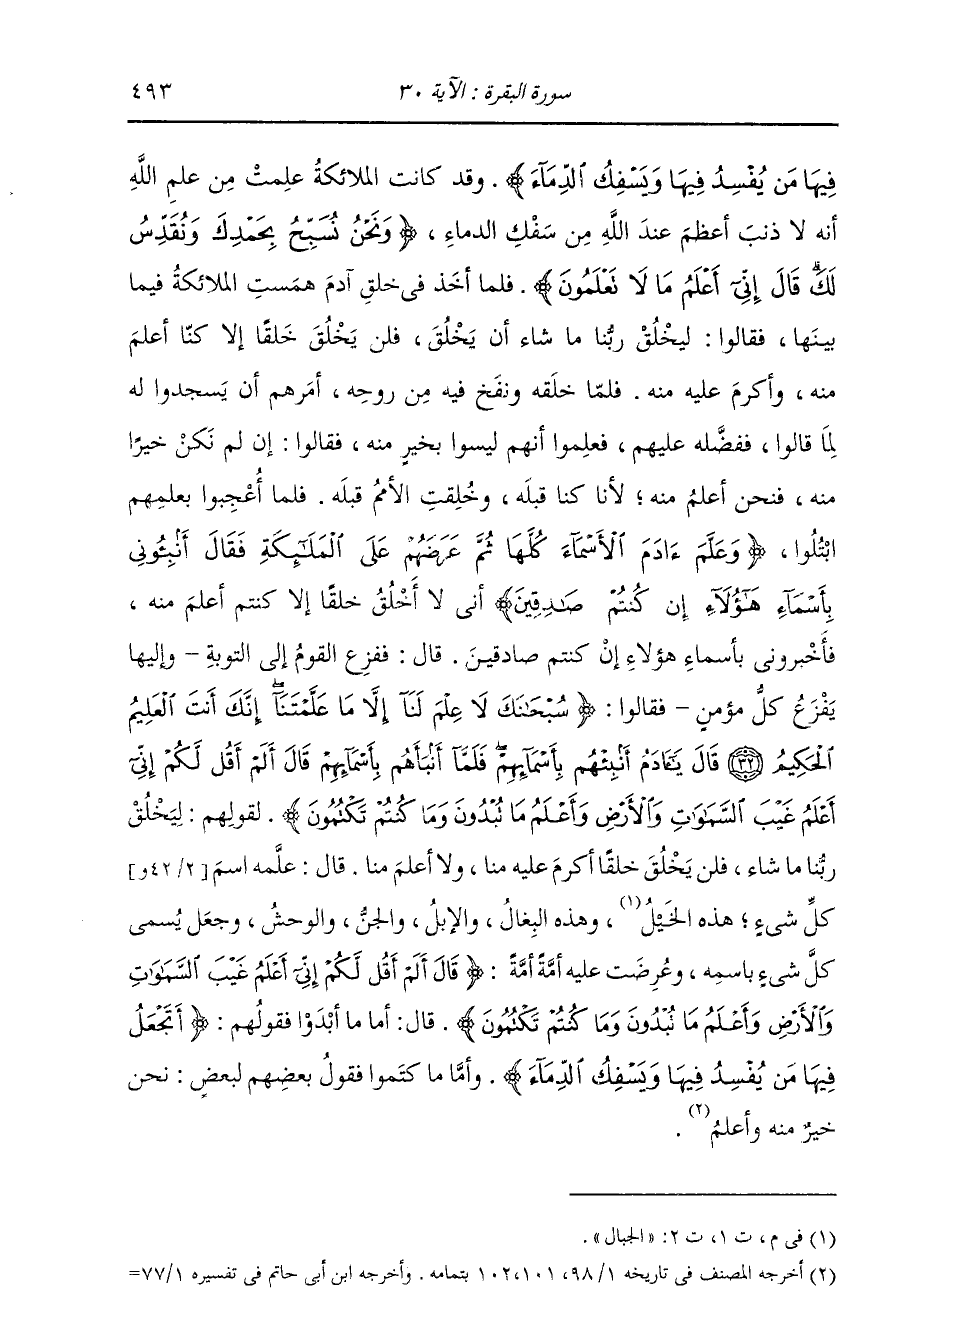 سورة البقرة : الآية ٣٠
٤٩٣
فِيهَا مَن يُفْسِدُ فِيهَا وَيَسْفِكُ ٱلدِّمَآءَ﴾ . وقد كانت الملائكةُ علِمتْ مِن علمِ اللَّهِ
أنه لا ذنبَ أعظمَ عندَ اللَّهِ مِن سَفْكِ الدماءِ ، ﴿وَنَحْنُ نُسَبِّحُ بِحَمْدِكَ وَنُقَدِّسُ
لَكَۖ قَالَ إِنِّىٓ أَعْلَمُ مَا لَا نَعْلَمُونَ﴾ . فلما أخَذ فى خلقِ آدمَ همَستِ الملائكةُ فيما
بينَها ، فقالوا : ليخْلُقْ ربُّنا ما شاء أن يَخْلُقَ ، فلن يَخْلُقَ خَلقًا إلا كنّا أعلمَ
منه ، وأكرمَ عليه منه . فلمّا خلَقه ونفَخ فيه مِن روحِه ، أمَرهم أن يَسجدوا له
لِمَا قالوا ، ففضَّله عليهم ، فعلِموا أنهم ليسوا بخيرٍ منه ، فقالوا : إن لم نَكنْ خيرًا
منه ، فنحن أعلمُ منه ؛ لأنا كنا قبلَه ، وخُلِقتِ الأممُ قبلَه . فلما أُعْجِبوا بعلمِهم
ابْتُلوا ، ﴿وَعَلَّمَ ءَادَمَ ٱلْأَسْمَآءَ كُلَّهَا ثُمَّ عَرَضَهُمْ عَلَى ٱلْمَلَـٰٓئِكَةِ فَقَالَ أَنۢبِـُٔونِى
بِأَسْمَآءِ هَـٰٓؤُلَآءِ إِن كُنتُمْ صَـٰدِقِينَ﴾ أنى لا أَخْلُقُ خلقًا إلا كنتم أعلمَ منه ،
فأَخْبِرونى بأسماءِ هؤلاءِ إنْ كنتم صادقينَ . قال : ففزِع القومُ إلى التوبةِ – وإليها
يَفْزَعُ كلُّ مؤمنٍ – فقالوا : ﴿سُبْحَـٰنَكَ لَا عِلْمَ لَنَآ إِلَّا مَا عَلَّمْتَنَآۖ إِنَّكَ أَنتَ ٱلْعَلِيمُ
ٱلْحَكِيمُ ۝٣٢ قَالَ يَـٰٓـَٔادَمُ أَنۢبِئْهُم بِأَسْمَآئِهِمْۖ فَلَمَّآ أَنۢبَأَهُم بِأَسْمَآئِهِمْ قَالَ أَلَمْ أَقُل لَّكُمْ إِنِّىٓ
أَعْلَمُ غَيْبَ ٱلسَّمَـٰوَٰتِ وَٱلْأَرْضِ وَأَعْلَمُ مَا تُبْدُونَ وَمَا كُنتُمْ تَكْتُمُونَ﴾ . لقولِهم : لِيَخْلُقْ
ربُّنا ما شاء ، فلن يَخْلُقَ خلقًا أكرمَ عليه منا ، ولا أعلمَ منا . قال : علَّمه اسمَ [٤٢/٢و]
كلِّ شىءٍ ؛ هذه الخَيْلُ(١) ، وهذه البِغالُ ، والإبلُ ، والجنُّ ، والوحشُ ، وجعَل يُسمى
كلَّ شىءٍ باسمِه ، وعُرِضت عليه أمَّةً أمَّةً : ﴿قَالَ أَلَمْ أَقُل لَّكُمْ إِنِّىٓ أَعْلَمُ غَيْبَ ٱلسَّمَـٰوَٰتِ
وَٱلْأَرْضِ وَأَعْلَمُ مَا تُبْدُونَ وَمَا كُنتُمْ تَكْتُمُونَ﴾ . قال: أما ما أبْدَوْا فقولُهم : ﴿أَتَجْعَلُ
فِيهَا مَن يُفْسِدُ فِيهَا وَيَسْفِكُ ٱلدِّمَآءَ﴾ . وأمَّا ما كتَموا فقولُ بعضِهم لبعضٍ : نحن
خيرٌ منه وأعلمُ(٢) .
(١) فى م ، ت ١، ت ٢: «الجبال» .
(٢) أخرجه المصنف فى تاريخه ١/ ٩٨، ١٠١، ١٠٢ بتمامه . وأخرجه ابن أبى حاتم فى تفسيره ٧٧/١=